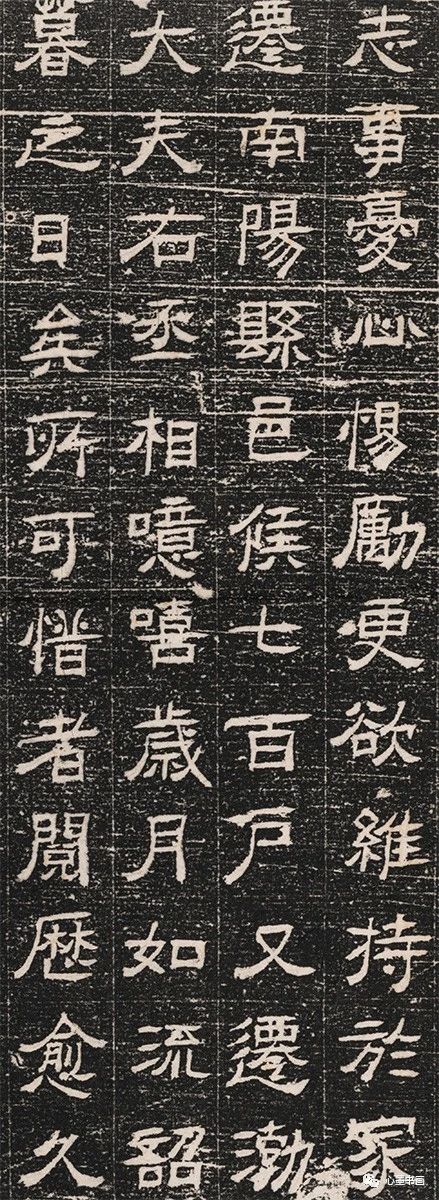 志事憂心惕勵更欲維持於家
遷南陽縣邑候七百戶又遷渤
大夫右丞相噫嘻歲月如流韶
暮之日矣所可惜者閱歴愈久